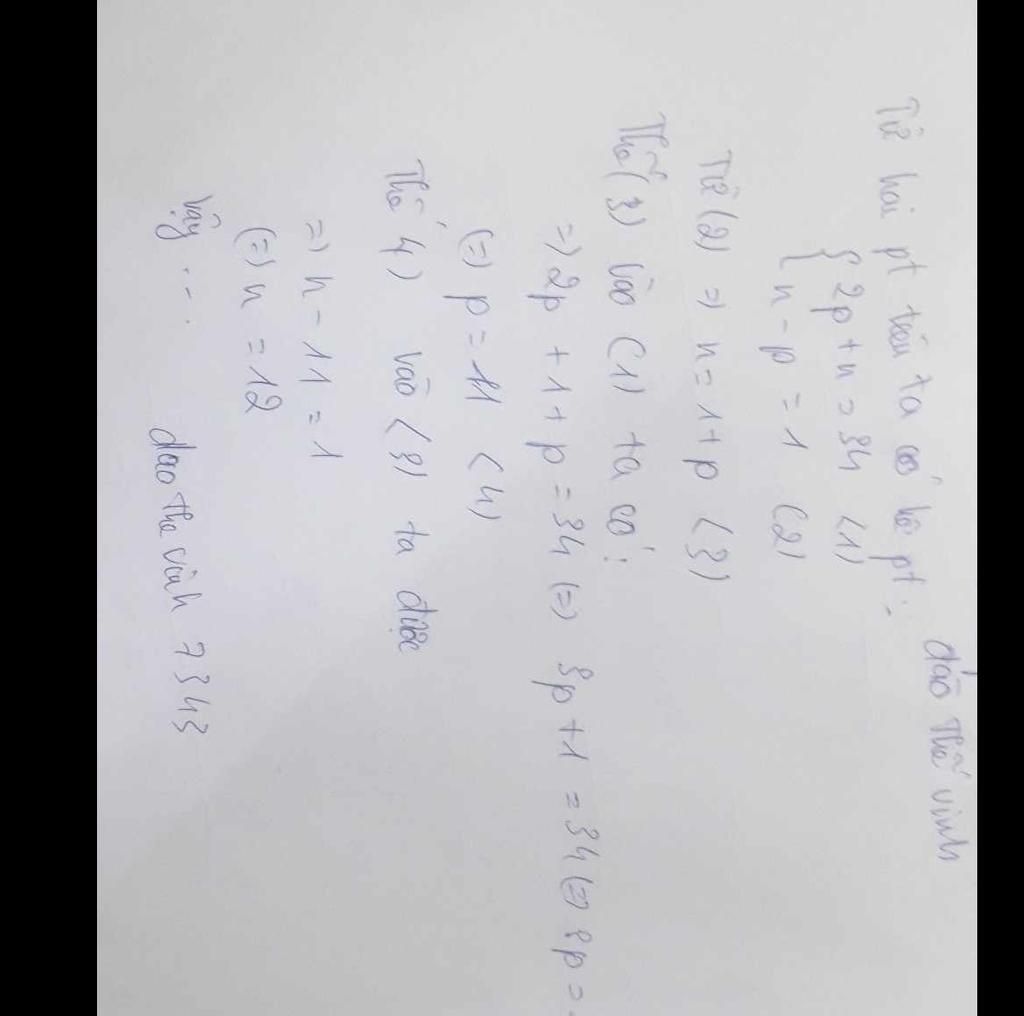 Đào Thế Vinh
Từ hai pt trên ta có hệ pt:
{ 2p + n = 34 (1)
n - p = 1 (2)
Từ (2) => n = 1 + p (3)
Thế (3) vào (1) ta có:
=> 2p + 1 + p = 34 (=) 3p + 1 = 34 (=) 3p =
(=) p = 11 (4)
Thế 4) vào (3) ta được
=> n - 11 = 1
(=) n = 12
Vậy ...
dao the vinh 7343